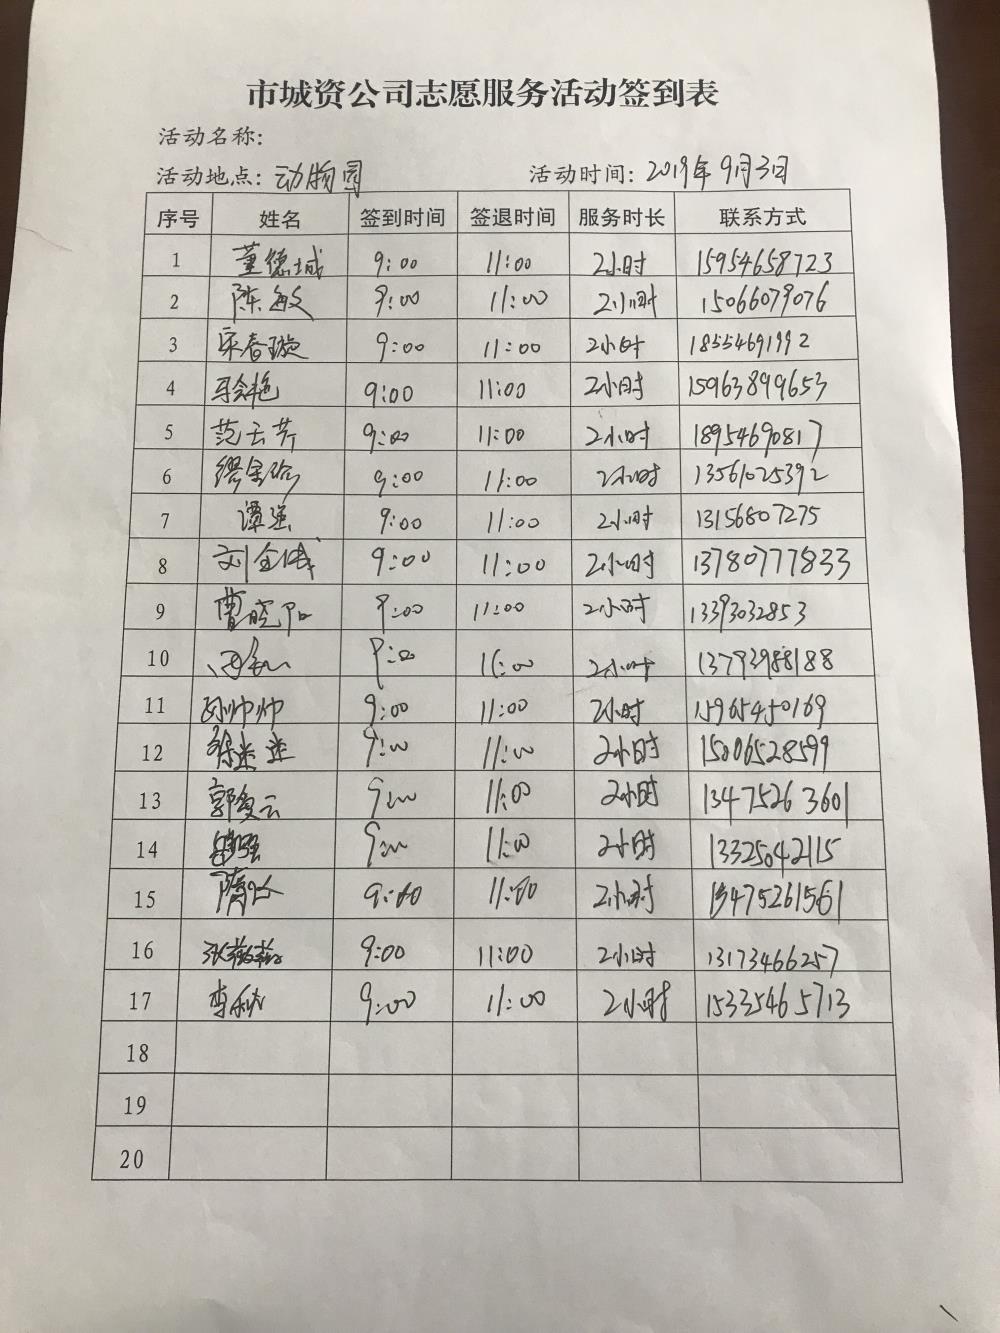 市城资公司志愿服务活动签到表
活动名称:
活动地点: 动物园 活动时间: 2019年9月3日
序号 姓名 签到时间 签退时间 服务时长 联系方式
1 董德城 9:00 11:00 2小时 15954658723
2 陈敏 9:00 11:00 2小时 15066079076
3 宋春璇 9:00 11:00 2小时 18554691992
4 9:00 11:00 2小时 15963899653
5 范云芹 9:00 11:00 2小时 18954690817
6 9:00 11:00 2小时 13561025392
7 谭强 9:00 11:00 2小时 13156807275
8 刘金城 9:00 11:00 2小时 13780777833
9 曹晓阳 9:00 11:00 2小时 13393032853
10 9:00 11:00 2小时 13793988188
11 孙帅帅 9:00 11:00 2小时 15965450169
12 9:00 11:00 2小时 15006528599
13 郭复云 9:00 11:00 2小时 13475263601
14 9:00 11:00 2小时 13325042115
15 9:00 11:00 2小时 13475261561
16 张薇薇 9:00 11:00 2小时 13173466257
17 李秋 9:00 11:00 2小时 15335465713
18
19
20